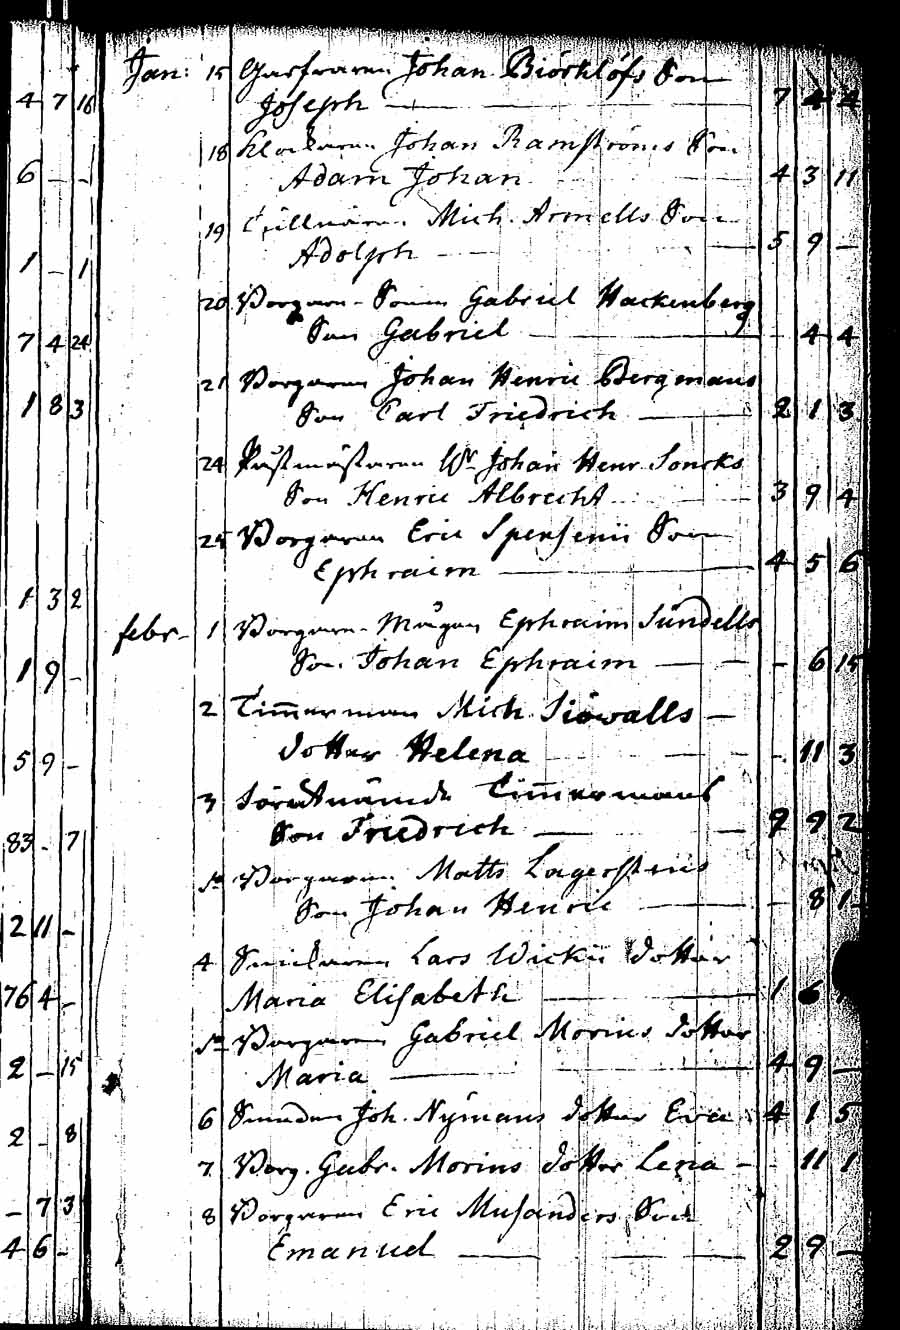 4 7 16
6 - -
1 - 1
7 4 24
1 8 3
1 3 2
1 9 -
5 9 -
83 - 7
2 11 -
76 4 -
2 - 15
2 - 8
- 7 3
4 6 -
Jan: 15 Garfvaren Johan Biörklöfs Son
Joseph 7 4 4
18 Johan Ramströms Son
Adam Johan 4 3 11
19 Mich. Armells Son
Adolph 5 9 -
20 Borgare-Sonen Gabriel Hackenberg
Son Gabriel - 4 4
21 Borgaren Johan Henric Bergmans
Son Carl Friedrich 2 1 3
24 Påstmästaren Wr Johan Henr. Soncks
Son Henric Albrecht 3 9 4
25 Borgaren Eric Spensenii Son
Ephraim 4 5 6
febr. 1 Borgare-Mågen Ephraim Sundells
Son Johan Ephraim - 6 15
2 Timmerman Mich. Siöwalls
dotter Helena - 11 3
3 Timmermans
Son Friedrich 9 2
Borgaren Matts Lagerstens
Son Johan Henric - 8 1
4 Lars Wickii dotter
Maria Elisabeth 1 6
Borgaren Gabriel Morins dotter
Maria 4 9 -
6 Smeden Joh. Nymans dotter Eva 4 1 5
7 Borg. Gabr. Morins dotter Lena - 11 1
8 Borgaren Eric Musanders Son
Emanuel 2 9 -